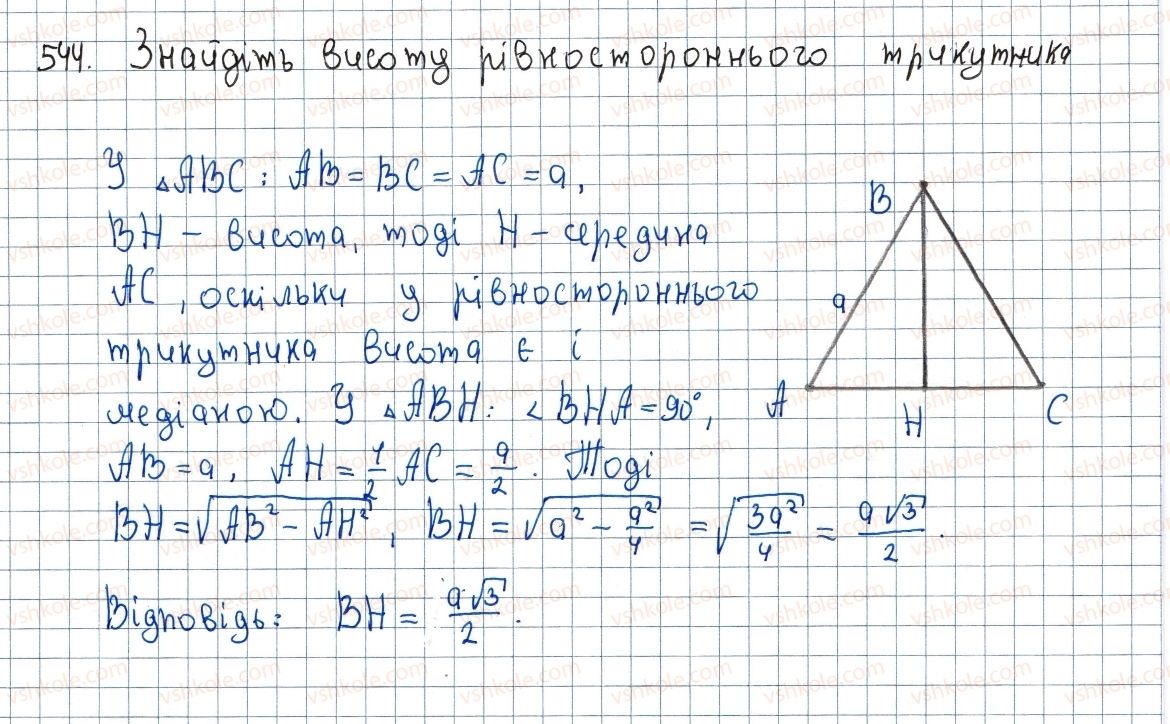 544. Знайдіть висоту рівностороннього трикутника
У △ABC: AB = BC = AC = a,
BH – висота, тоді H – середина
AC, оскільки у рівностороннього
трикутника висота є і
медіаною. У △ABH: ∠BHA = 90°,
AB = a, AH = 1/2 AC = a/2. Тоді
BH = √(AB² – AH²), BH = √(a² – a²/4) = √(3a²/4) = a√3/2.
Відповідь: BH = a√3/2.
B
a
A
H
C
vshkole.com